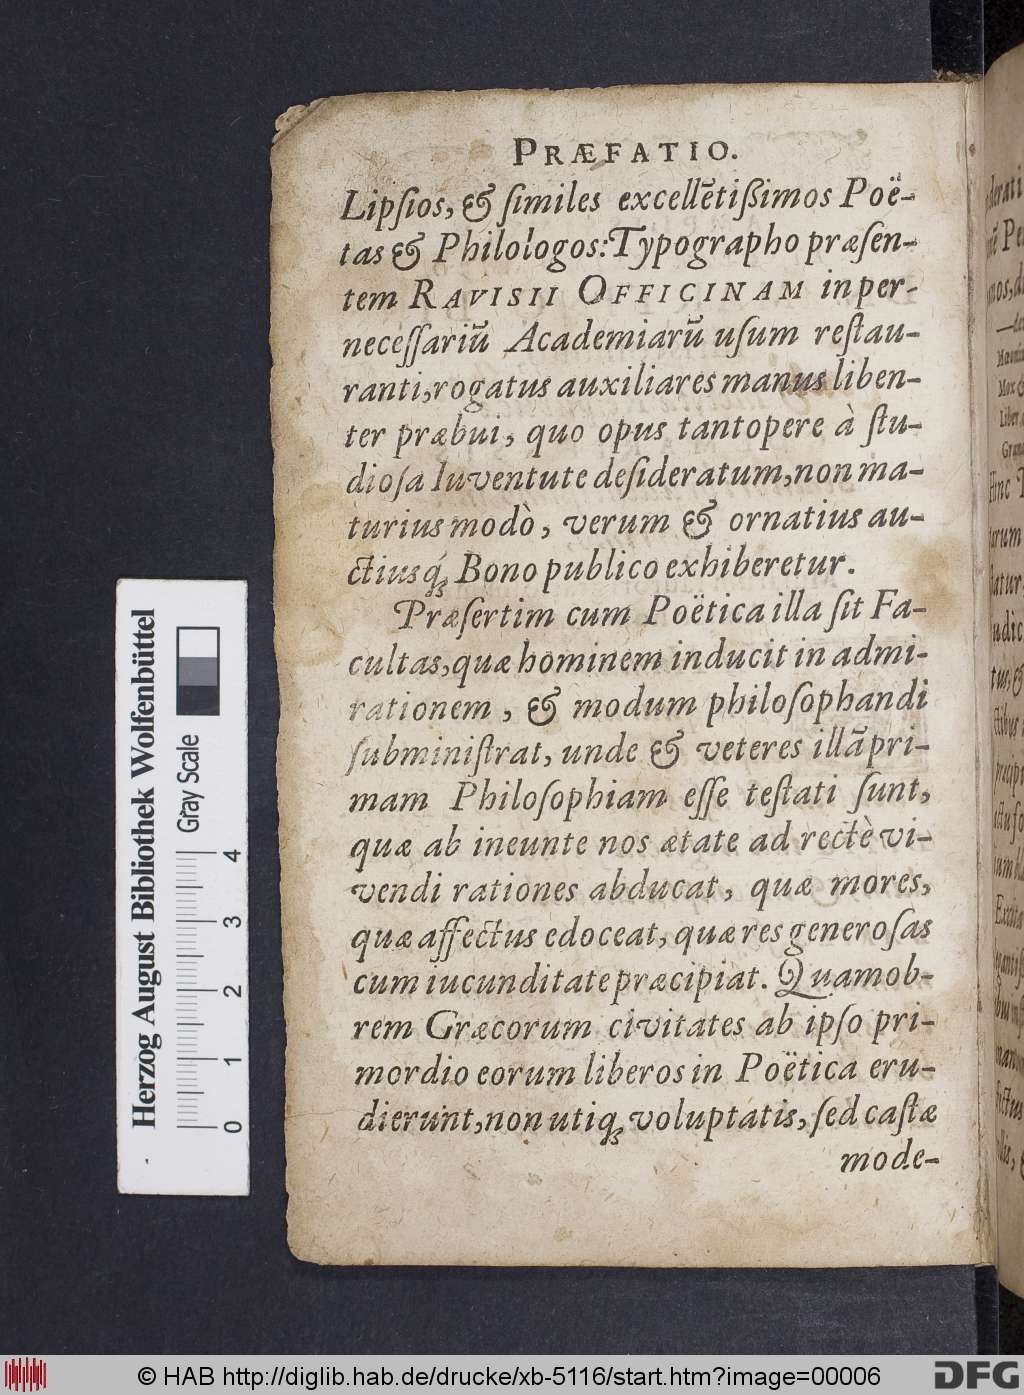 PRÆFATIO.
Lipſios, & ſimiles excellẽtiſsimos Poë-
tas & Philologos: Typographo præſen-
tem RAVISII OFFICINAM in per-
neceſſariũ Academiarũ uſum reſtau-
ranti, rogatus auxiliares manus liben-
ter præbui, quo opus tantopere à ſtu-
dioſa Iuventute deſideratum, non ma-
turius modò, verum & ornatius au-
ctiusq́; Bono publico exhiberetur.
Præſertim cum Poëtica illa ſit Fa-
cultas, quæ hominem inducit in admi-
rationem, & modum philoſophandi
ſubminiſtrat, unde & veteres illã pri-
mam Philoſophiam eſſe teſtati ſunt,
quæ ab ineunte nos ætate ad rectè vi-
vendi rationes abducat, quæ mores,
quæ affectus edoceat, quæ res generoſas
cum iucunditate præcipiat. Quamob-
rem Græcorum civitates ab ipſo pri-
mordio eorum liberos in Poëtica eru-
dierunt, non utiq; voluptatis, ſed caſtæ
mode-
Herzog August Bibliothek Wolfenbüttel
Gray Scale
0 1 2 3 4
© HAB http://diglib.hab.de/drucke/xb-5116/start.htm?image=00006
DFG